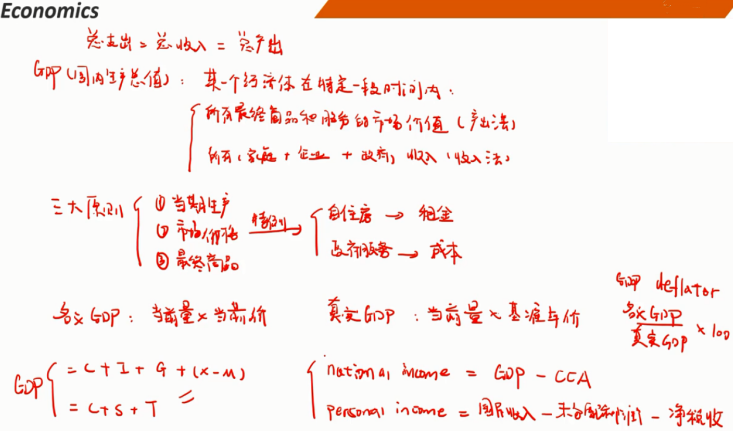 Economics
总支出 = 总收入 = 总产出
GDP(国内生产总值): 某一个经济体在特定一段时间内:
所有最终商品和服务的市场价值(产出法)
所有(家庭 + 企业 + 政府)收入(收入法)
三大原则 ① 当期生产
② 市场价格 特例 自住房 → 租金
③ 最终商品 政府服务 → 成本
GDP deflator
名义GDP: 当前量×当前价 真实GDP: 当前量×基准年价 名义GDP/真实GDP × 100
GDP = C + I + G + (X-M)
= C+S+T
national income = GDP - CCA
personal income = 国民收入 - - 净税收